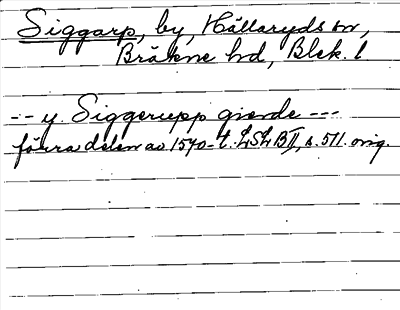 Siggarp, by, Hällaryds sn,
Bräkne hd, Blek. l
-- y Siggerupp gierde ---
förra delen av 1570-t. LSLB II, s. 511. orig.